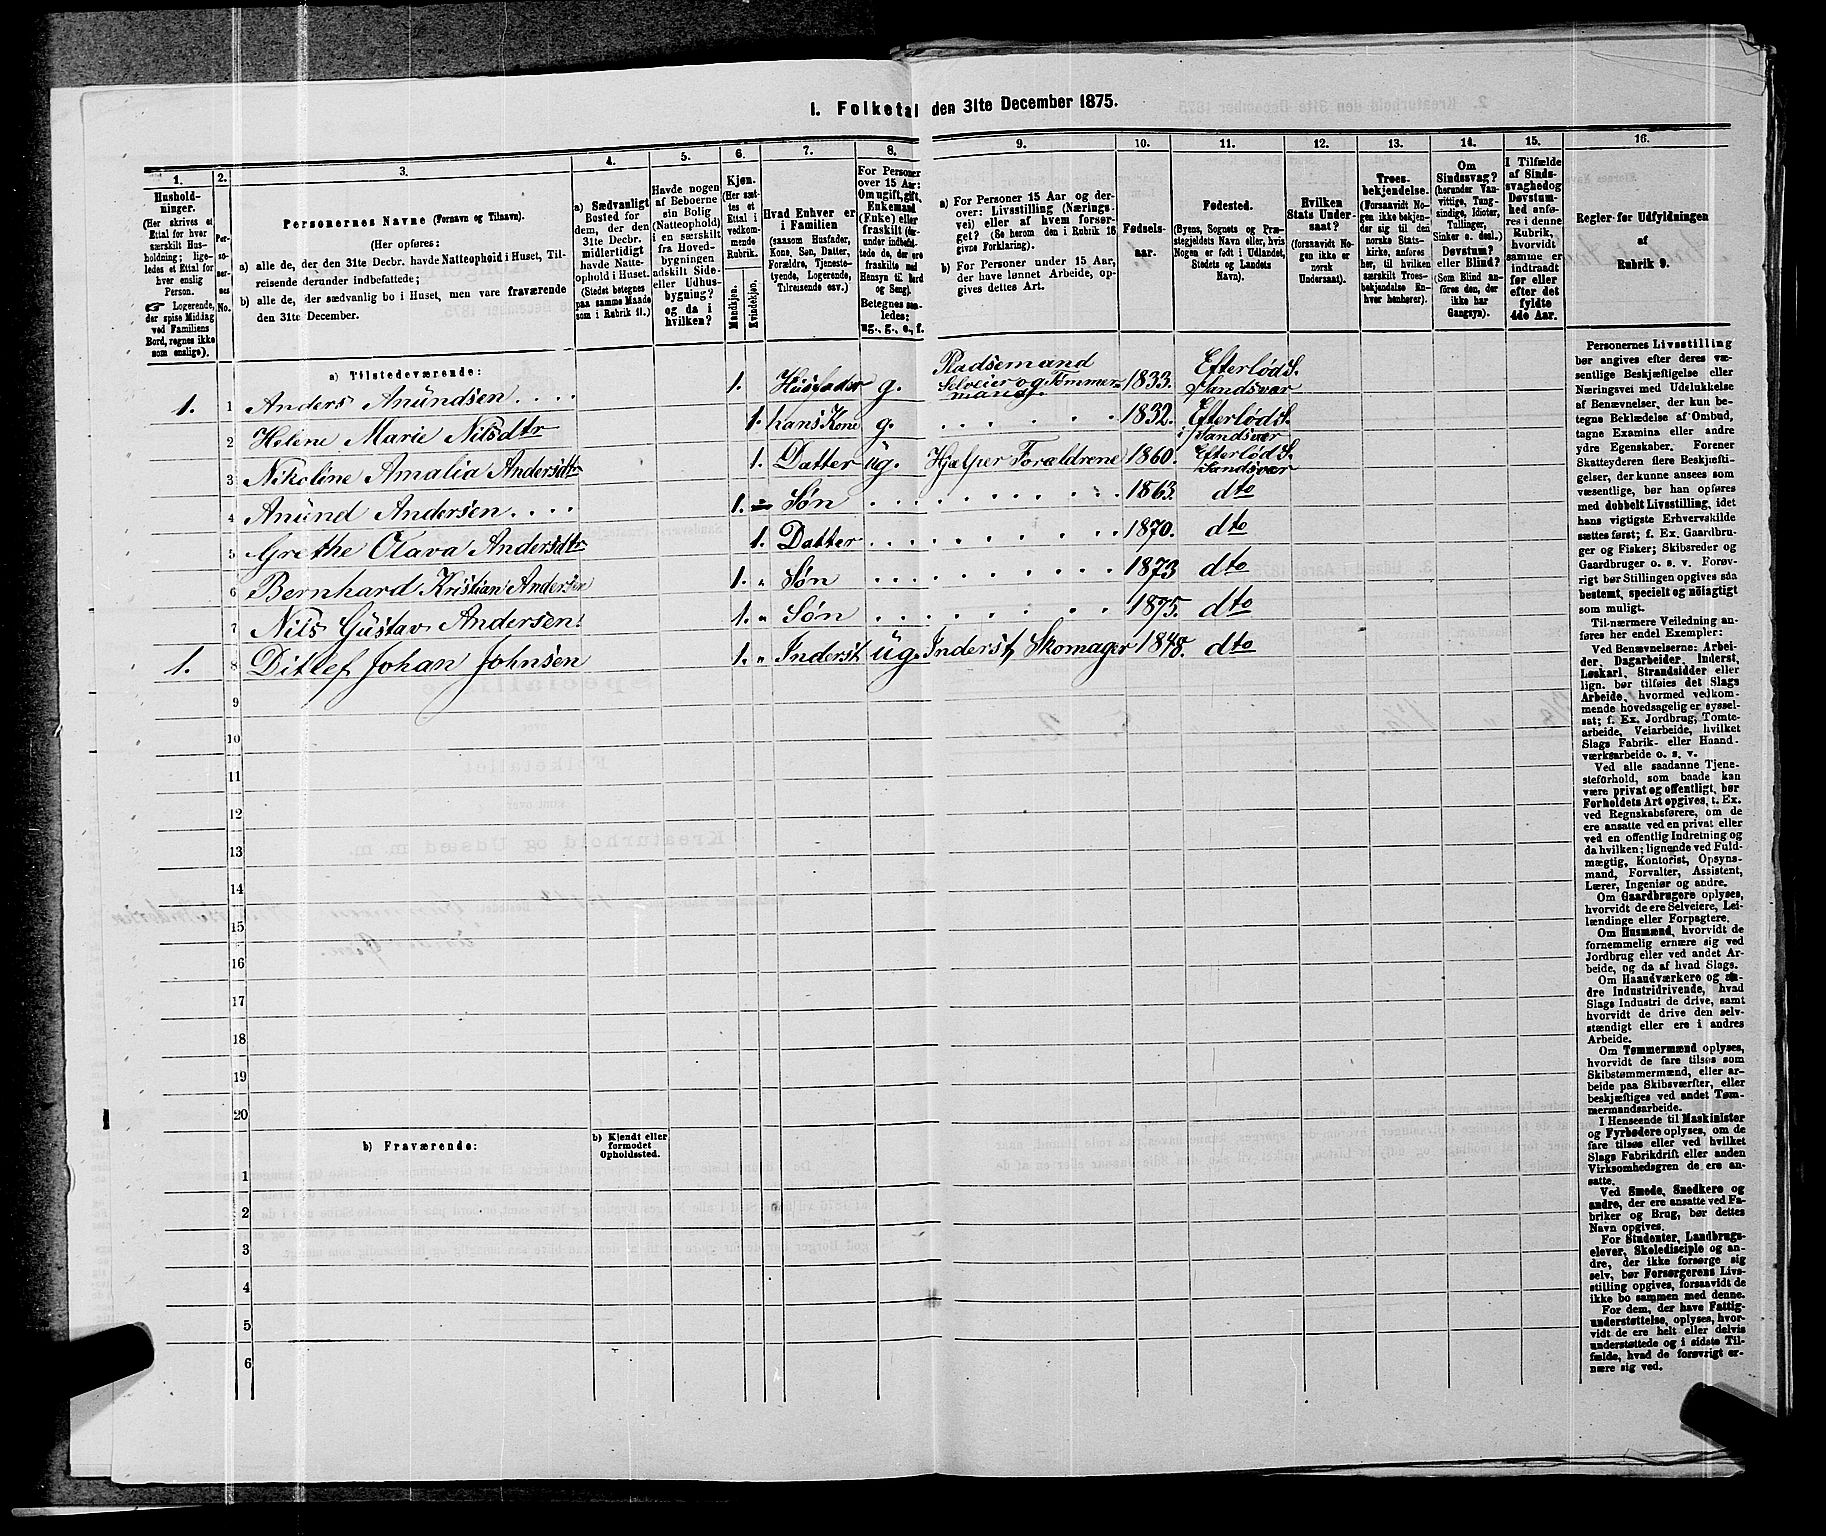 1. Folketal den 31te December 1875.
1. 2. 3. 4. 5. 6. 7. 8. 9. 10. 11. 12. 13. 14. 15. 16.
Husholdninger.
(Her skrives et
Ettal for hver
særskilt Husholdning;
ligeledes et Ettal for
hver enslig
Person.
☞ Logerende,
der spise Middag
ved Familiens
Bord, regnes ikke
som enslige).
Personernes No.
Personernes Navne (Fornavn og Tilnavn).
(Her opføres:
a) alle de, der den 31te Decbr. havde Natteophold i Huset, Tilreisende
derunder indbefattede;
b) alle de, der sædvanlig bo i Huset, men vare fraværende
den 31te December.
a) Sædvanligt
Bosted for
dem, der den
31te Decbr.
midlertidigt
havde Natteophold
i Huset.
(Stedet betegnes
paa samme Maade
som i Rubrik 11.)
Havde nogen
af Beboerne
sin Bolig
(Natteophold)
i en særskilt
fra Hovedbygningen
adskilt Side-
eller Udhusbygning?
og da i
hvilken?
Kjøn.
(Her sættes
et
Ettal i
vedkommende
Rubrik.
Mandkjøn.
Kvindekjøn.
Hvad Enhver er
i Familien
(saasom Husfader,
Kone, Søn, Datter,
Forældre, Tjenestetyende,
Logerende,
Tilreisende osv.)
For Personer
over 15 Aar:
Om ugift, gift,
Enkemand
(Enke) eller
fraskilt
Betegnes saaledes:
ug., g., e., f.
a) For Personer 15 Aar og derover:
Livsstilling (Næringsvei)
eller af hvem forsørget?
(Se herom den i Rubrik 16
givne Forklaring).
b) For Personer under 15 Aar,
der have lønnet Arbeide, opgives
dettes Art.
Fødselsaar.
Fødested.
(Byens, Sognets og Præstegjeldets
Navn eller, hvis
Nogen er født i Udlandet,
Stedets og Landets
Navn).
Hvilken
Stats Undersaat?
(forsaavidt Nogen
ikke er
norsk
Undersaat).
Troesbekjendelse.
(Forsaavidt Nogen
ikke bekjender
sig til den
norske Statskirke,
anføres
her, til hvilken
særskilt Troesbekjendelse
Enhver
henhører).
Om
Sindssvag?
(herunder Vanvittige,
Tungsindige,
Idioter,
Tullinger,
Sinker o. desl.)
Døvstum?
eller Blind?
(Som Blind anføres
den, der
ikke har
Gangsyn).
I Tilfælde
af Sindssvaghed
og
Døvstumhed
anføres
i denne
Rubrik,
hvorvidt
samme er
indtraadt
før eller
efter det
fyldte
4de Aar.
Regler for Udfyldningen
af
Rubrik 9.
a) Tilstedeværende:
1. 1 Anders Anundsen 1. Husfader g. Pladsemand Selveier og Tømmermand. 1833. Efterløds. Sandsvær
2 Helene Marie Nilsdtr 1. hans Kone g. 1832. Efterløds. i Sandsvær
3 Nikoline Amalia Andersdtr 1. Datter ug. Hjelper Forældrene 1860. Efterløds. Sandsvær
4 Anund Andersen 1. Søn 1863. dto
5 Grethe Olava Andersdtr 1. Datter 1870. dto
6 Bernhard Kristian Andersen 1. " Søn 1873 dto
7 Nils Gustav Andersen 1. " Søn 1875. dto
1. 8 Ditlef Johan Johnsen 1. " Inderst ug. Inderst, Skomager 1848. dto
9
10
11
12
13
14
15
16
17
18
19
20
b) Fraværende:
b) Kjendt eller
formodet
Opholdssted.
1
2
3
4
5
6
Personernes Livsstilling
bør angives efter deres væsentlige
Beskjæftigelse eller
Næringsvei med Udelukkelse
af Benævnelser, der kun betegne
Beklædelse af Ombud,
tagne Examina eller andre
ydre Egenskaber. Forener
Skatteyderen flere Beskjæftigelser,
der kunne ansees som
væsentlige, bør han opføres
med dobbelt Livsstilling, idet
hans vigtigste Erhvervskilde
sættes først; f. Ex. Gaardbruger
og Fisker; Skibsreder og
Gaardbruger o. s. v. Forøvrigt
bør Stillingen opgives saa
bestemt, specielt og nøiagtigt
som muligt.
Til nærmere Veiledning anføres
her endel Exempler:
Ved Benævnelserne: Arbeider,
Dagarbeider, Inderst,
Løskarl, Strandsidder eller
lign. bør tilføies det Slags
Arbeide, hvormed vedkommende
hovedsagelig er sysselsat;
f. Ex. Jordbrug, Tomtearbeide,
Veiarbeide, hvilket
Slags Fabrik- eller Haandværksarbeide
o. s. v.
Ved alle saadanne Tjenesteforhold,
som baade kan
være privat og offentligt, bør
Forholdets Art opgives, t. Ex.
ved Regnskabsførere, om de
ere ansatte ved en privat eller
ved en offentlig Indretning og
da hvilken; lignende ved Fuldmægtig,
Kontorist, Opsynsmand,
Forvalter, Assistent,
Lærer, Ingeniør og andre.
Om Gaardbrugere oplyses,
hvorvidt de ere Selveiere, Leilændinge
eller Forpagtere.
Om Husmænd, hvorvidt de
fornemmelig ernære sig ved
Jordbrug eller ved andet Arbeide,
og da af hvad Slags.
Om Haandværkere og andre
Industridrivende, hvad
Slags Industri de drive, samt
hvorvidt de drive den selvstændigt
eller ere i andres
Arbeide.
Om Tømmermænd oplyses,
hvorvidt de fare tilsøs som
Skibstømmermænd, eller arbeide
paa Skibsværfter, eller
beskjæftiges ved andet Tømmermandsarbeide.
I Henseende til Maskinister
og Fyrbødere oplyses, om de
fare tilsøs eller ved hvilket
Slags Fabrikdrift eller anden
Virksomhedsgren de ere ansatte.
Ved Smede, Snedkere og
andre, der ere ansatte ved Fabriker
og Brug, bør dettes
Navn opgives.
For Studenter, Landbrugselever,
Skoledisciple og andre,
der ikke forsørge sig
selv, bør Forsørgerens Livsstilling
opgives, forsaavidt de
ikke bo sammen med denne.
For dem, der have Fattigunderstøttelse,
oplyses, hvorvidt
de ere helt eller delvis
understøttede og i sidste Tilfælde,
hvad de forøvrigt ernære
sig ved.